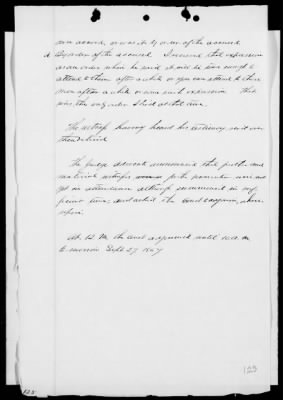 own accord, or was it by order of the accused
A By order of the accused. I received that expression
as an order when he said it will be time enough to
attend to them after a while or you can attend to these
men after a while or some such expression. This
was the only order I had at that time.
The witness having heard his testimony said
The Judge Advocate announced that further
material witnesses for the prosecution were not
yet in attendance although summoned in
time, and asked the Court adjourn, where
upon
At 12 M. the Court adjourned until 10 a.m.
to-morrow Sept 27 1867
123
125